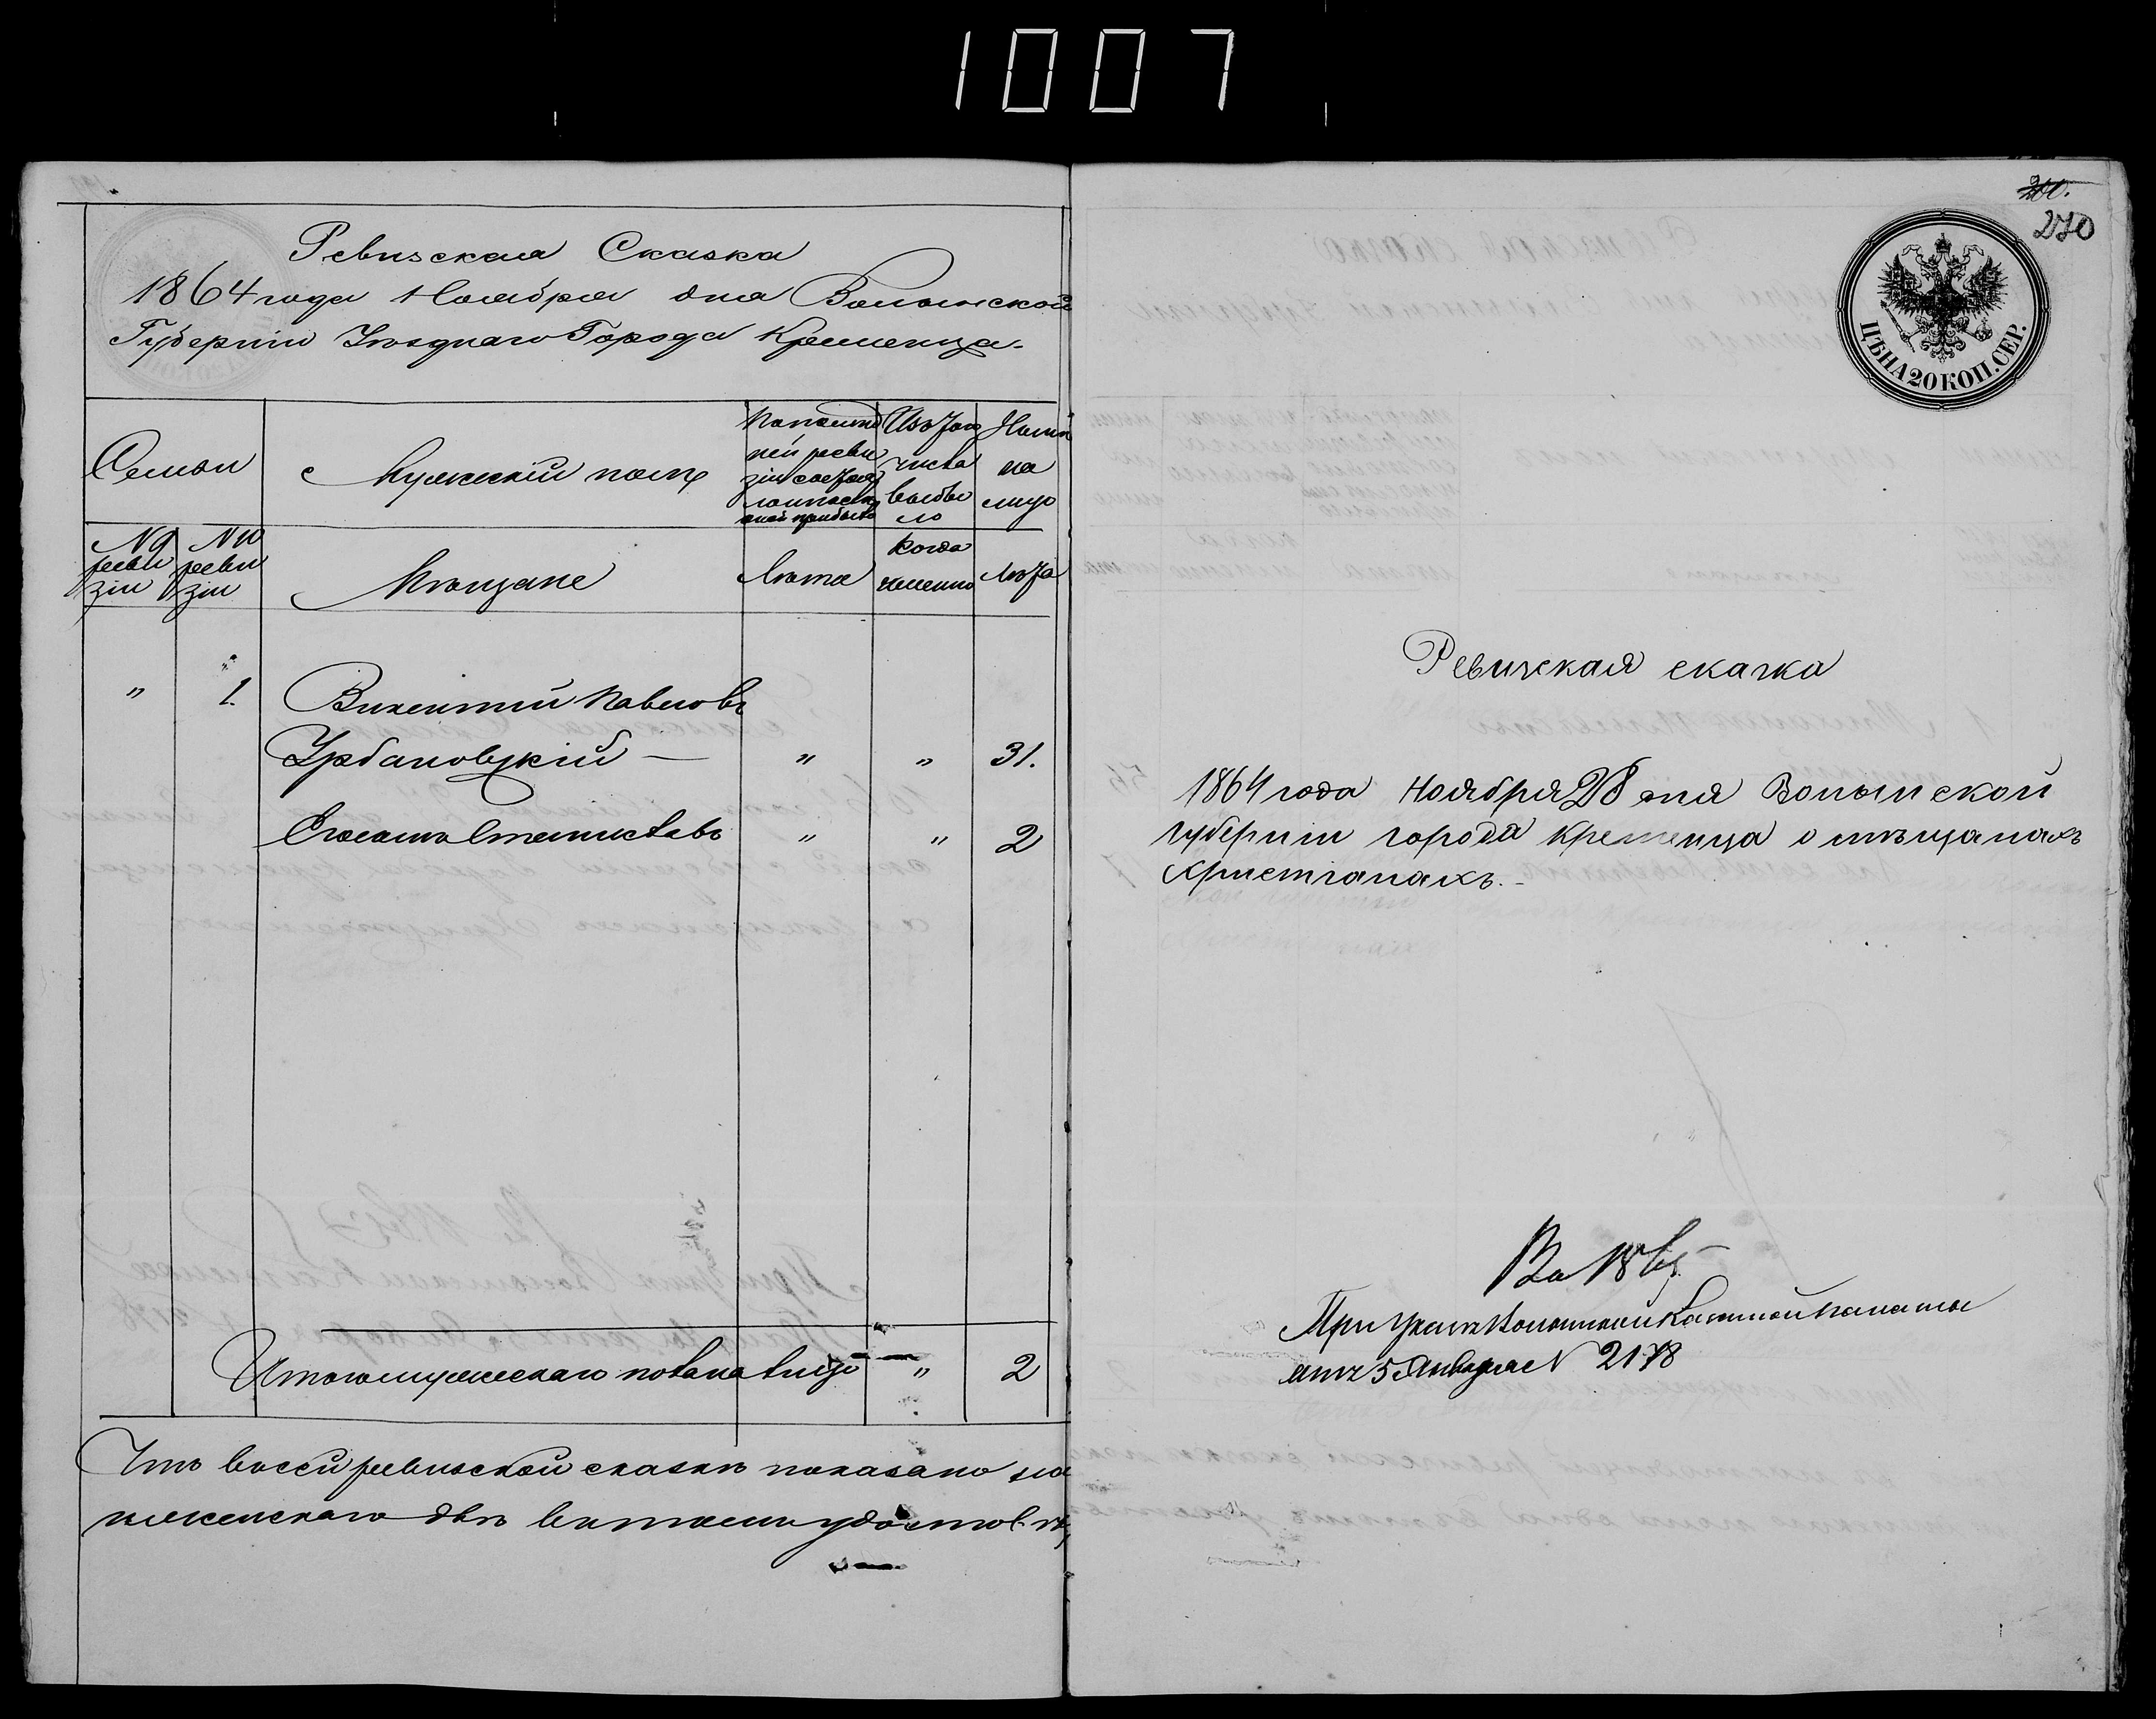 1007
Ревизская Сказка
1864 года Ноября дня Волынской
Губерніи Уѣзднаго Города Кременца.
Семьи
Мужескій полъ
По послѣд
ней реви
зіи состоя
ло и послѣ
оной прибыло
Изъ того
числа
выбы
ло
Нынѣ
на
лицо
№ 9
реви
зіи
№ 10
реви
зіи
Мѣщане
Лѣта
Когда
именно
Лѣта
„ 1. Викентій Павловъ
Урбановскій — „ „ 31.
Его сынъ Станиславъ „ „ 2
Итого мужескаго пола на лицо „ 2
Что въ сей ревизской сказкѣ показано
двѣ въ томъ
200.
270
ЦѢНА 20 КОП. СЕР.
Ревизская сказка
1864 года Ноября 28 дня Волынской
губерніи города Кременца о мѣщанахъ
христіанахъ.
При Указѣ Волынской Казенной Палаты
отъ 5 Января № 2178